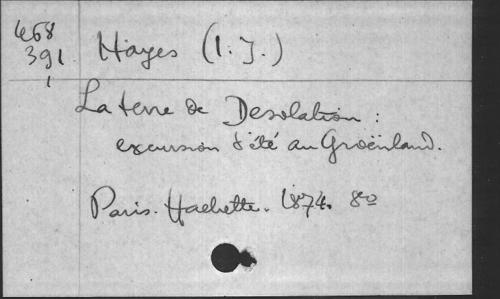 468
391
1
Hayes (I. J.)
La terre de Desolation :
excursion d'été au Groënland.
Paris. Hachette. 1874. 8º